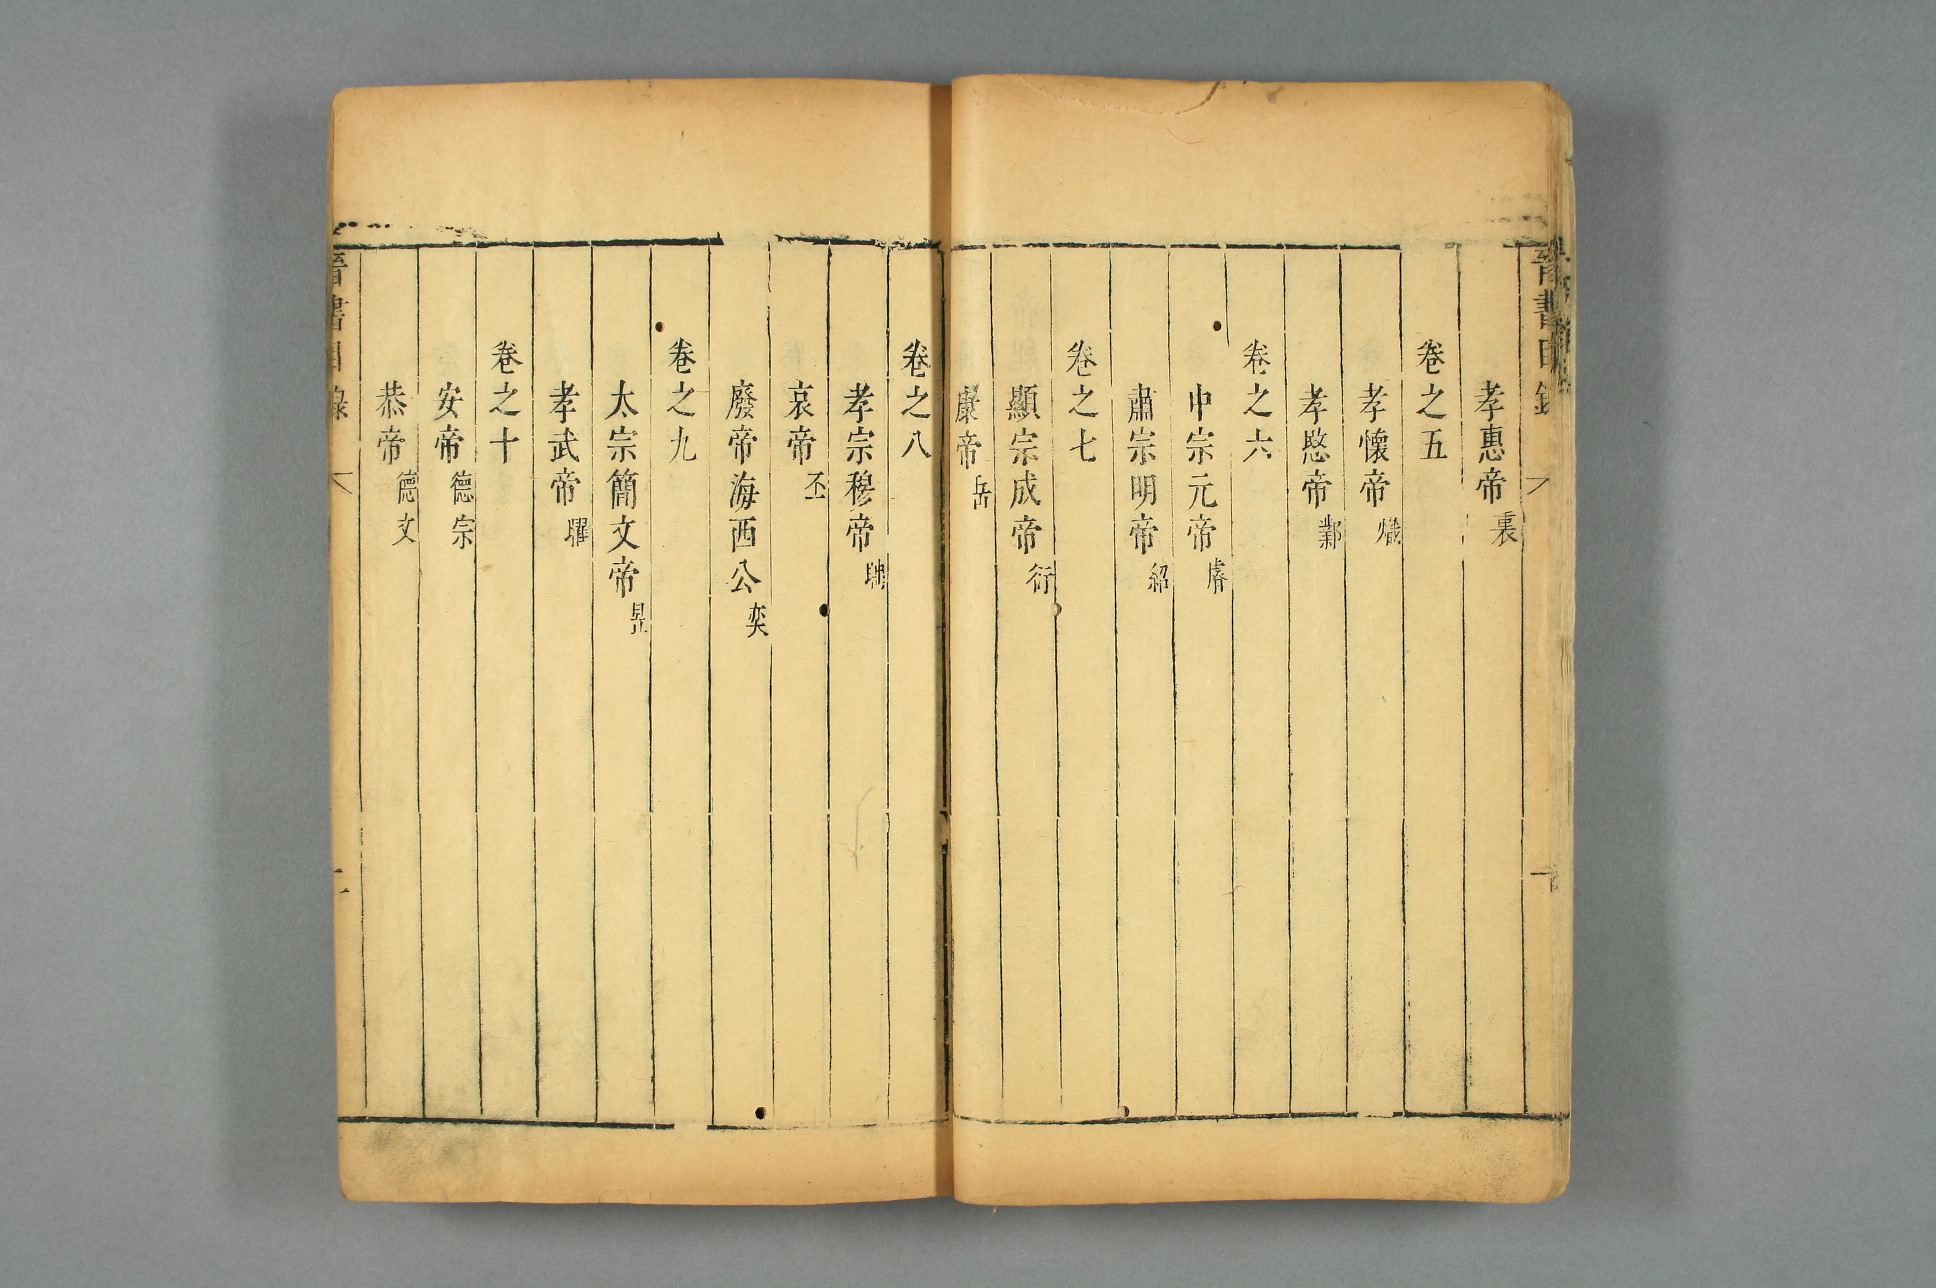 晉書目錄 一
孝惠帝 裏
卷之五
孝懷帝 熾
孝愍帝 鄴
卷之六
中宗元帝 睿
肅宗明帝 紹
卷之七
顯宗成帝 衍
康帝 岳
卷之八
孝宗穆帝 聃
哀帝 丕
廢帝海西公 奕
卷之九
太宗簡文帝 昱
孝武帝 曜
卷之十
安帝 德宗
恭帝 德文
晉書目錄 二